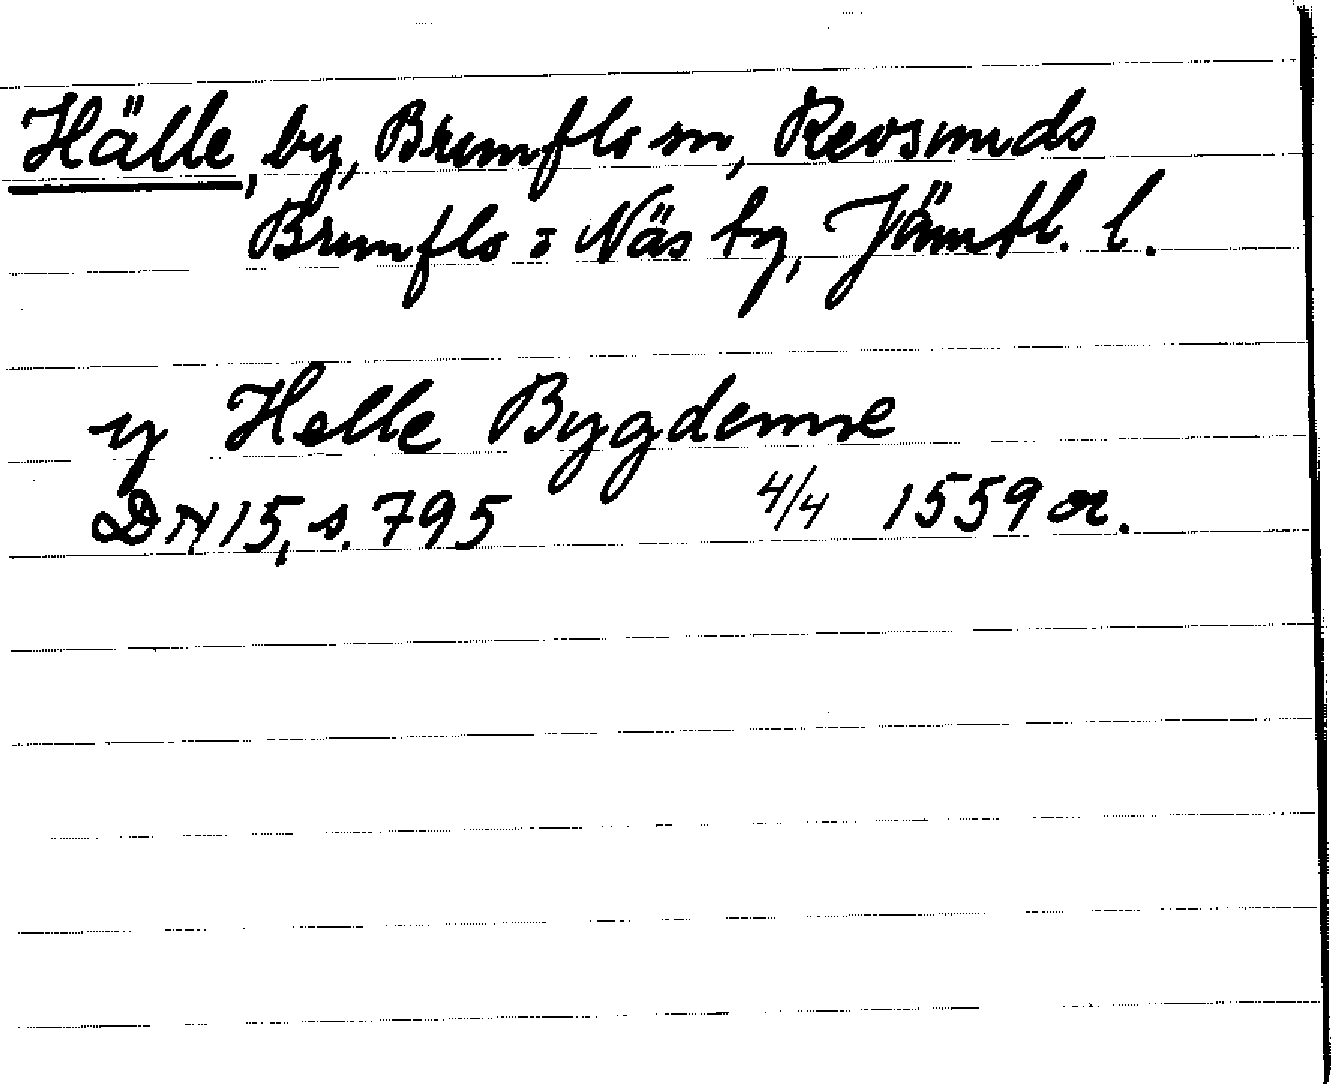 Hälle, by, Brunflo sn, Revsunds
Brunflo o Näs tg, Jämtl. l.
y Helle Bygdenne
DN 15, s. 795 4/4 1559 or.